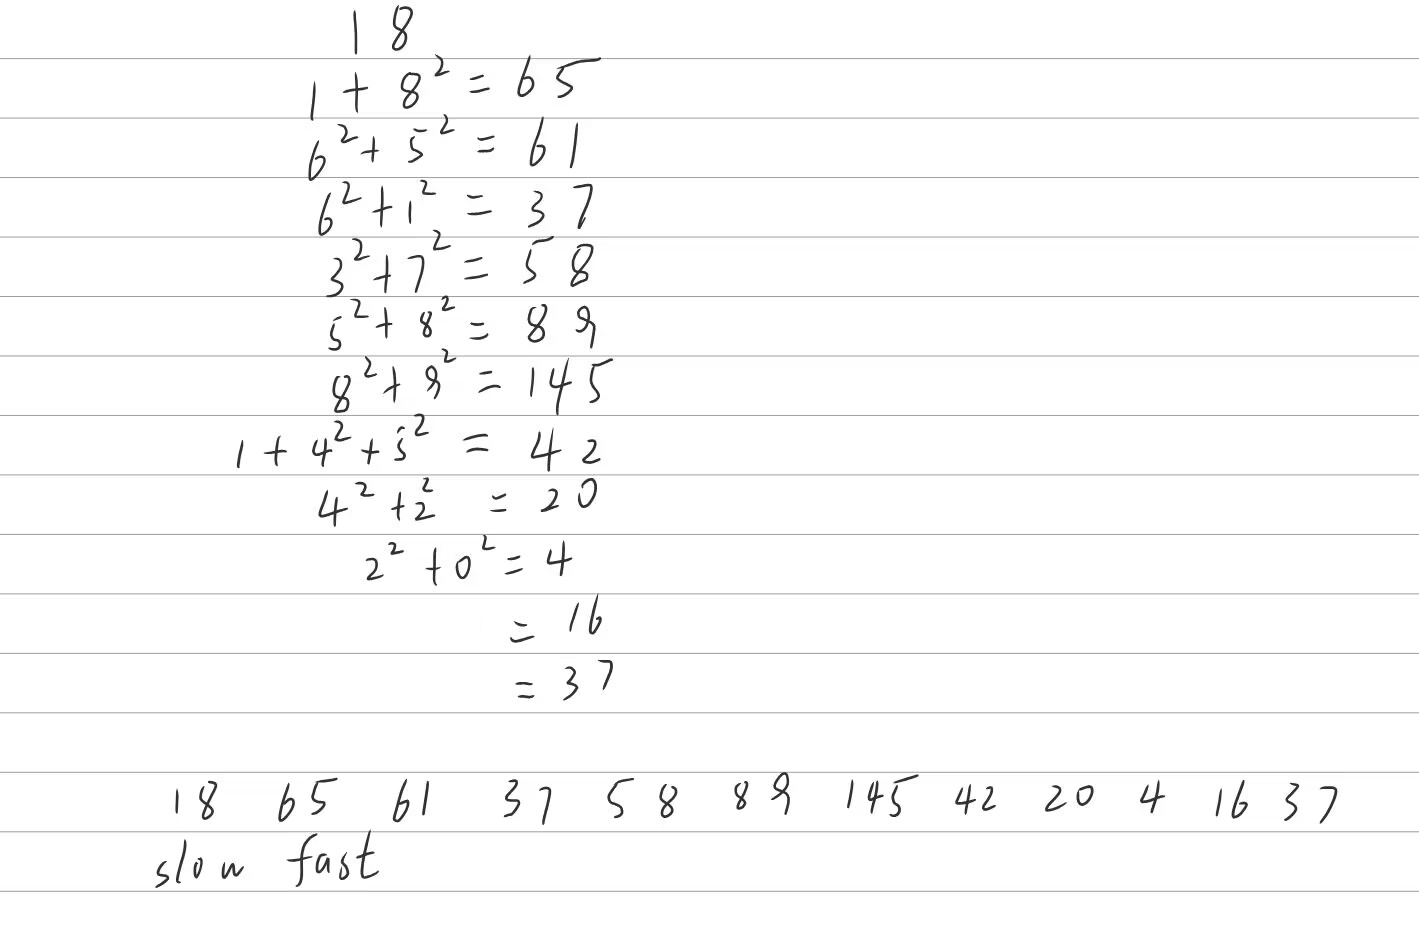 18
1 + 8² = 65
6² + 5² = 61
6² + 1² = 37
3² + 7² = 58
5² + 8² = 89
8² + 9² = 145
1 + 4² + 5² = 42
4² + 2² = 20
2² + 0² = 4
= 16
= 37
18 65 61 37 58 89 145 42 20 4 16 37
slow fast